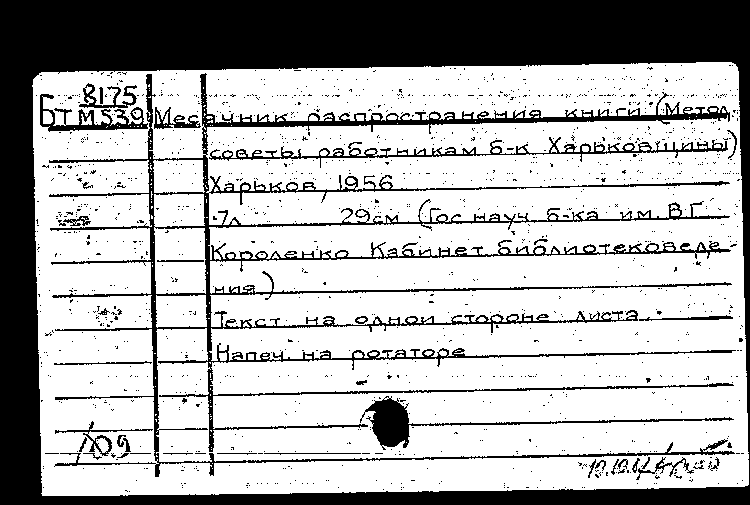 8175
БТ М539 Месячник распространения книги (Метод.
советы работникам б-к Харьковщины)
Харьков, 1956
7л 29см (Гос науч. б-ка им. В.Г.
Короленко Кабинет библиотековеде-
ния)
Текст на одной стороне листа.
Напеч. на ротаторе
109